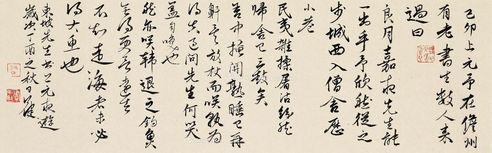 己卯上元予在儋州
有老書生數人来
過曰
良月嘉夜先生能
一出乎予欣然從之
步城西入僧舍歷
小巷
民夷雜揉屠沽紛然
歸舍已三鼓矣
舍中掩關熟睡已再
鼾矣放杖而咲孰為
得失過問先生何咲
蓋自咲也
然亦咲韓退之釣魚
無得更欲遠去
不知走海者未必
得大魚也
東坡先生書上元夜遊
歲次丁酉之秋月